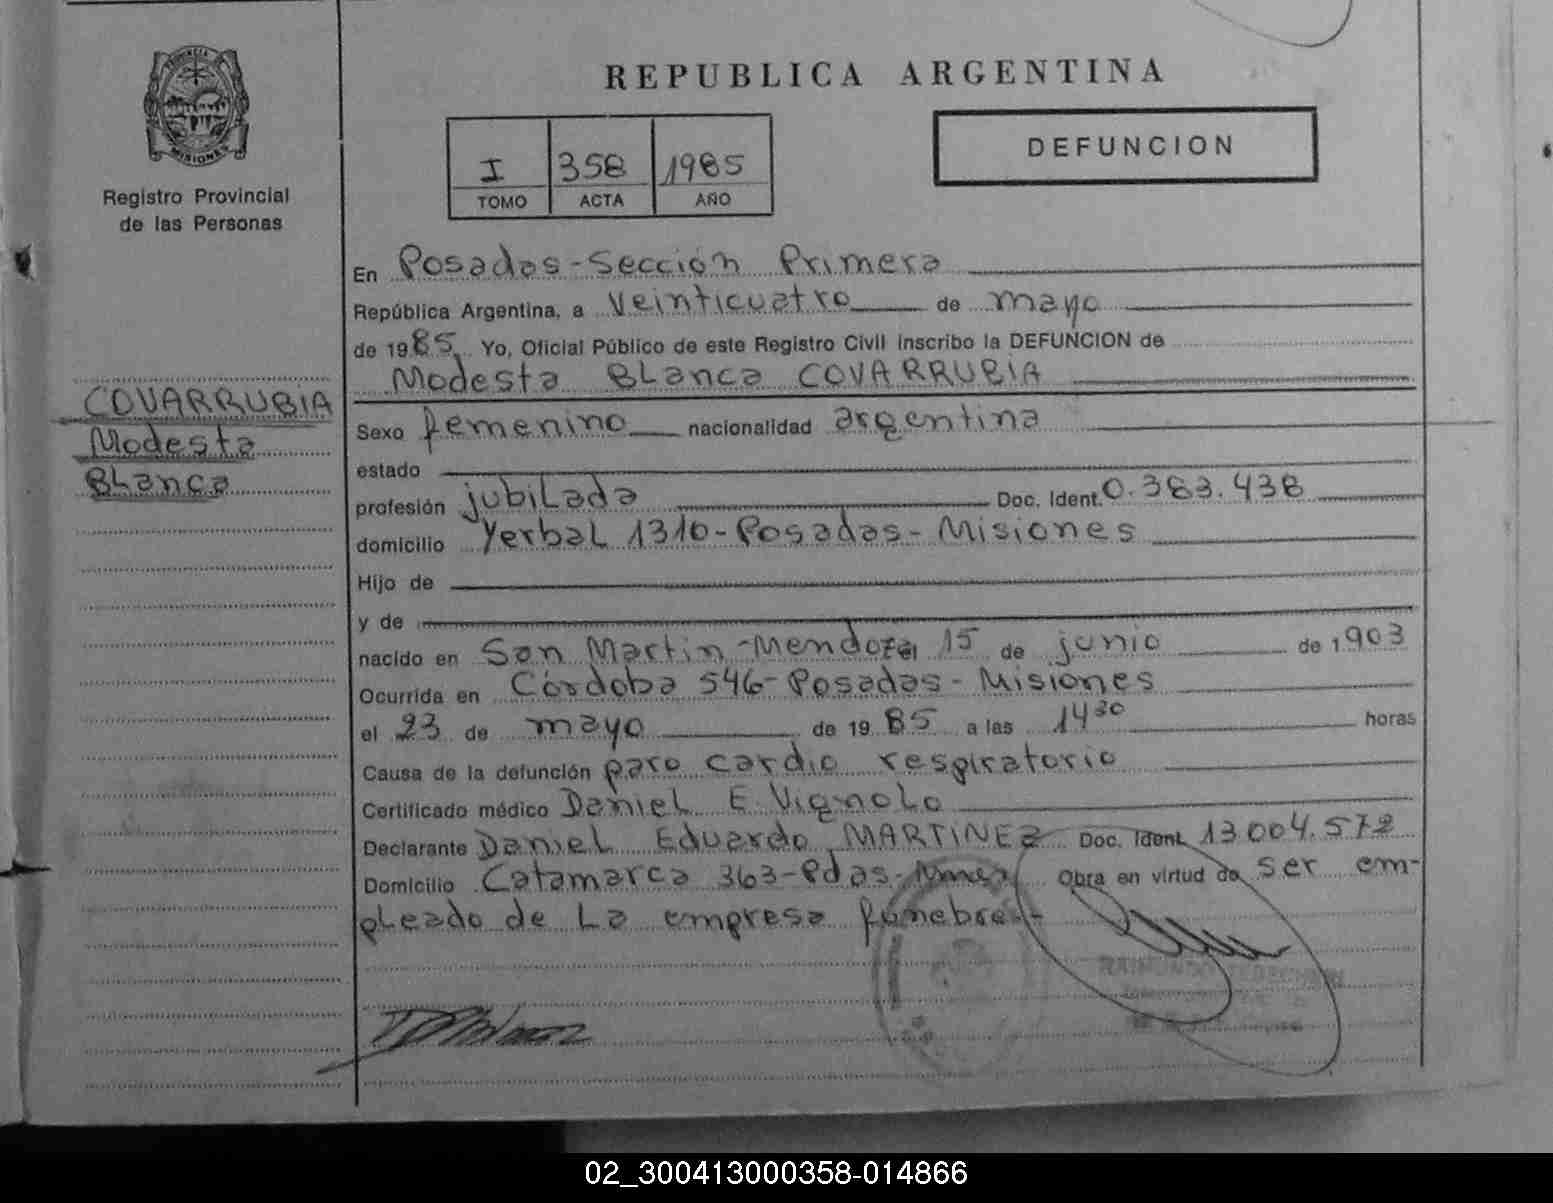 PROVINCIA DE
MISIONES
Registro Provincial
de las Personas
COVARRUBIA
Modesta
Blanca
REPUBLICA ARGENTINA
I 358 1985
TOMO ACTA AÑO
DEFUNCION
En Posadas-Sección Primera
República Argentina, a veinticuatro de mayo
de 1985. Yo, Oficial Público de este Registro Civil inscribo la DEFUNCION de
Modesta Blanca COVARRUBIA
Sexo femenino nacionalidad argentina
estado
profesión jubilada Doc. Ident. 0.383.438
domicilio Yerbal 1310-Posadas-Misiones
Hijo de
y de
nacido en San Martin-Mendoza 15 de junio de 1903
Ocurrida en Córdoba 546-Posadas-Misiones
el 23 de mayo de 1985 a las 14 30 horas
Causa de la defunción paro cardio respiratorio
Certificado médico Daniel E. Vignolo
Declarante Daniel Eduardo MARTINEZ Doc. Ident. 13.004.572
Domicilio Catamarca 363-Pdas-Mnes Obra en virtud de ser em-
pleado de la empresa fúnebre.-
RAIMUNDO
02_300413000358-014866